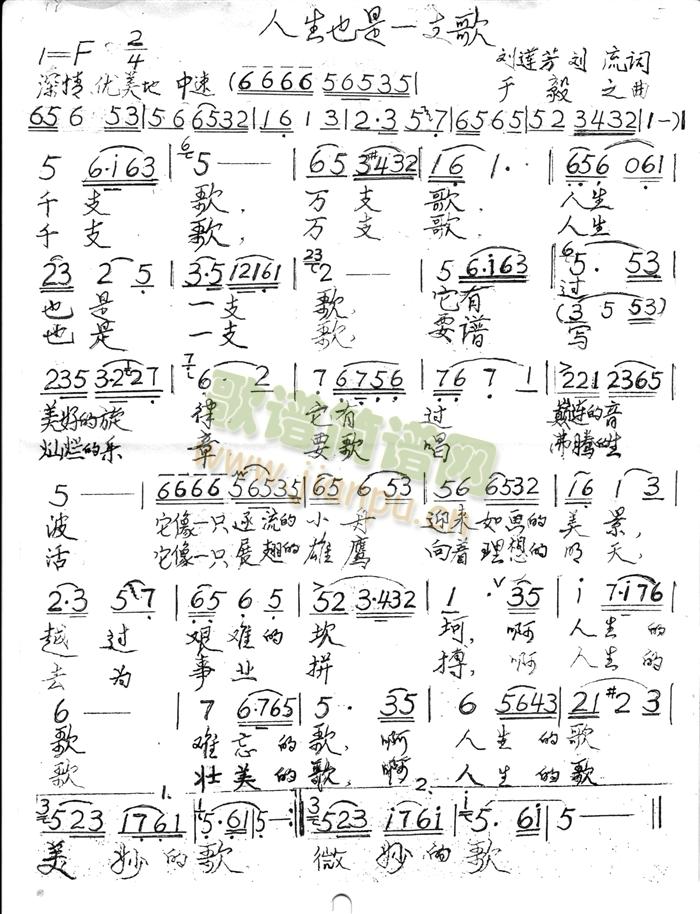 人生也是一支歌
1=F 2/4
刘莲芳 刘流词
深情 优美地 中速 (6666 56535|
于毅之曲
656 53|56 6532|16 13|2·3 57|6565|52 3432|1-)|
5 6·i63|5--|65 3#432|16 1·|656 061|
千支歌,万支歌.人生
千支歌,万支歌.人生
23 2 5|3·5 12161|2--|5 6·i63|5· 53|
也是一支歌,它有过
也是一支歌,要谱写
(3 5 53)
235 3·2227|6· 2|7 6756|76 7 1|221 2365|
美好的旋律 它有过巅连的音
灿烂的乐章 要歌唱沸腾的生
5--|6666 56535|65 6 53|56 6532|16 1 3|
波 它像一只逐流的小舟 迎来如画的美景,
活 它像一只展翅的雄鹰 向着理想的明天,
2·3 57|65 6 5|52 3·432|1 35|i 7·i76|
越过艰难的坎坷,啊 人生的
去为事业拼搏,啊 人生的
6--|7 6·765|5· 35|6 5643|21 #2 3|
歌 难忘的歌,啊 人生的歌
歌 壮美的歌,啊 人生的歌
1. 2.
523 1761|5·61|5-:||523 i76i|5· 6i|5--||
美妙的歌 微妙的歌
歌谱简谱网
www.jianpu.cn